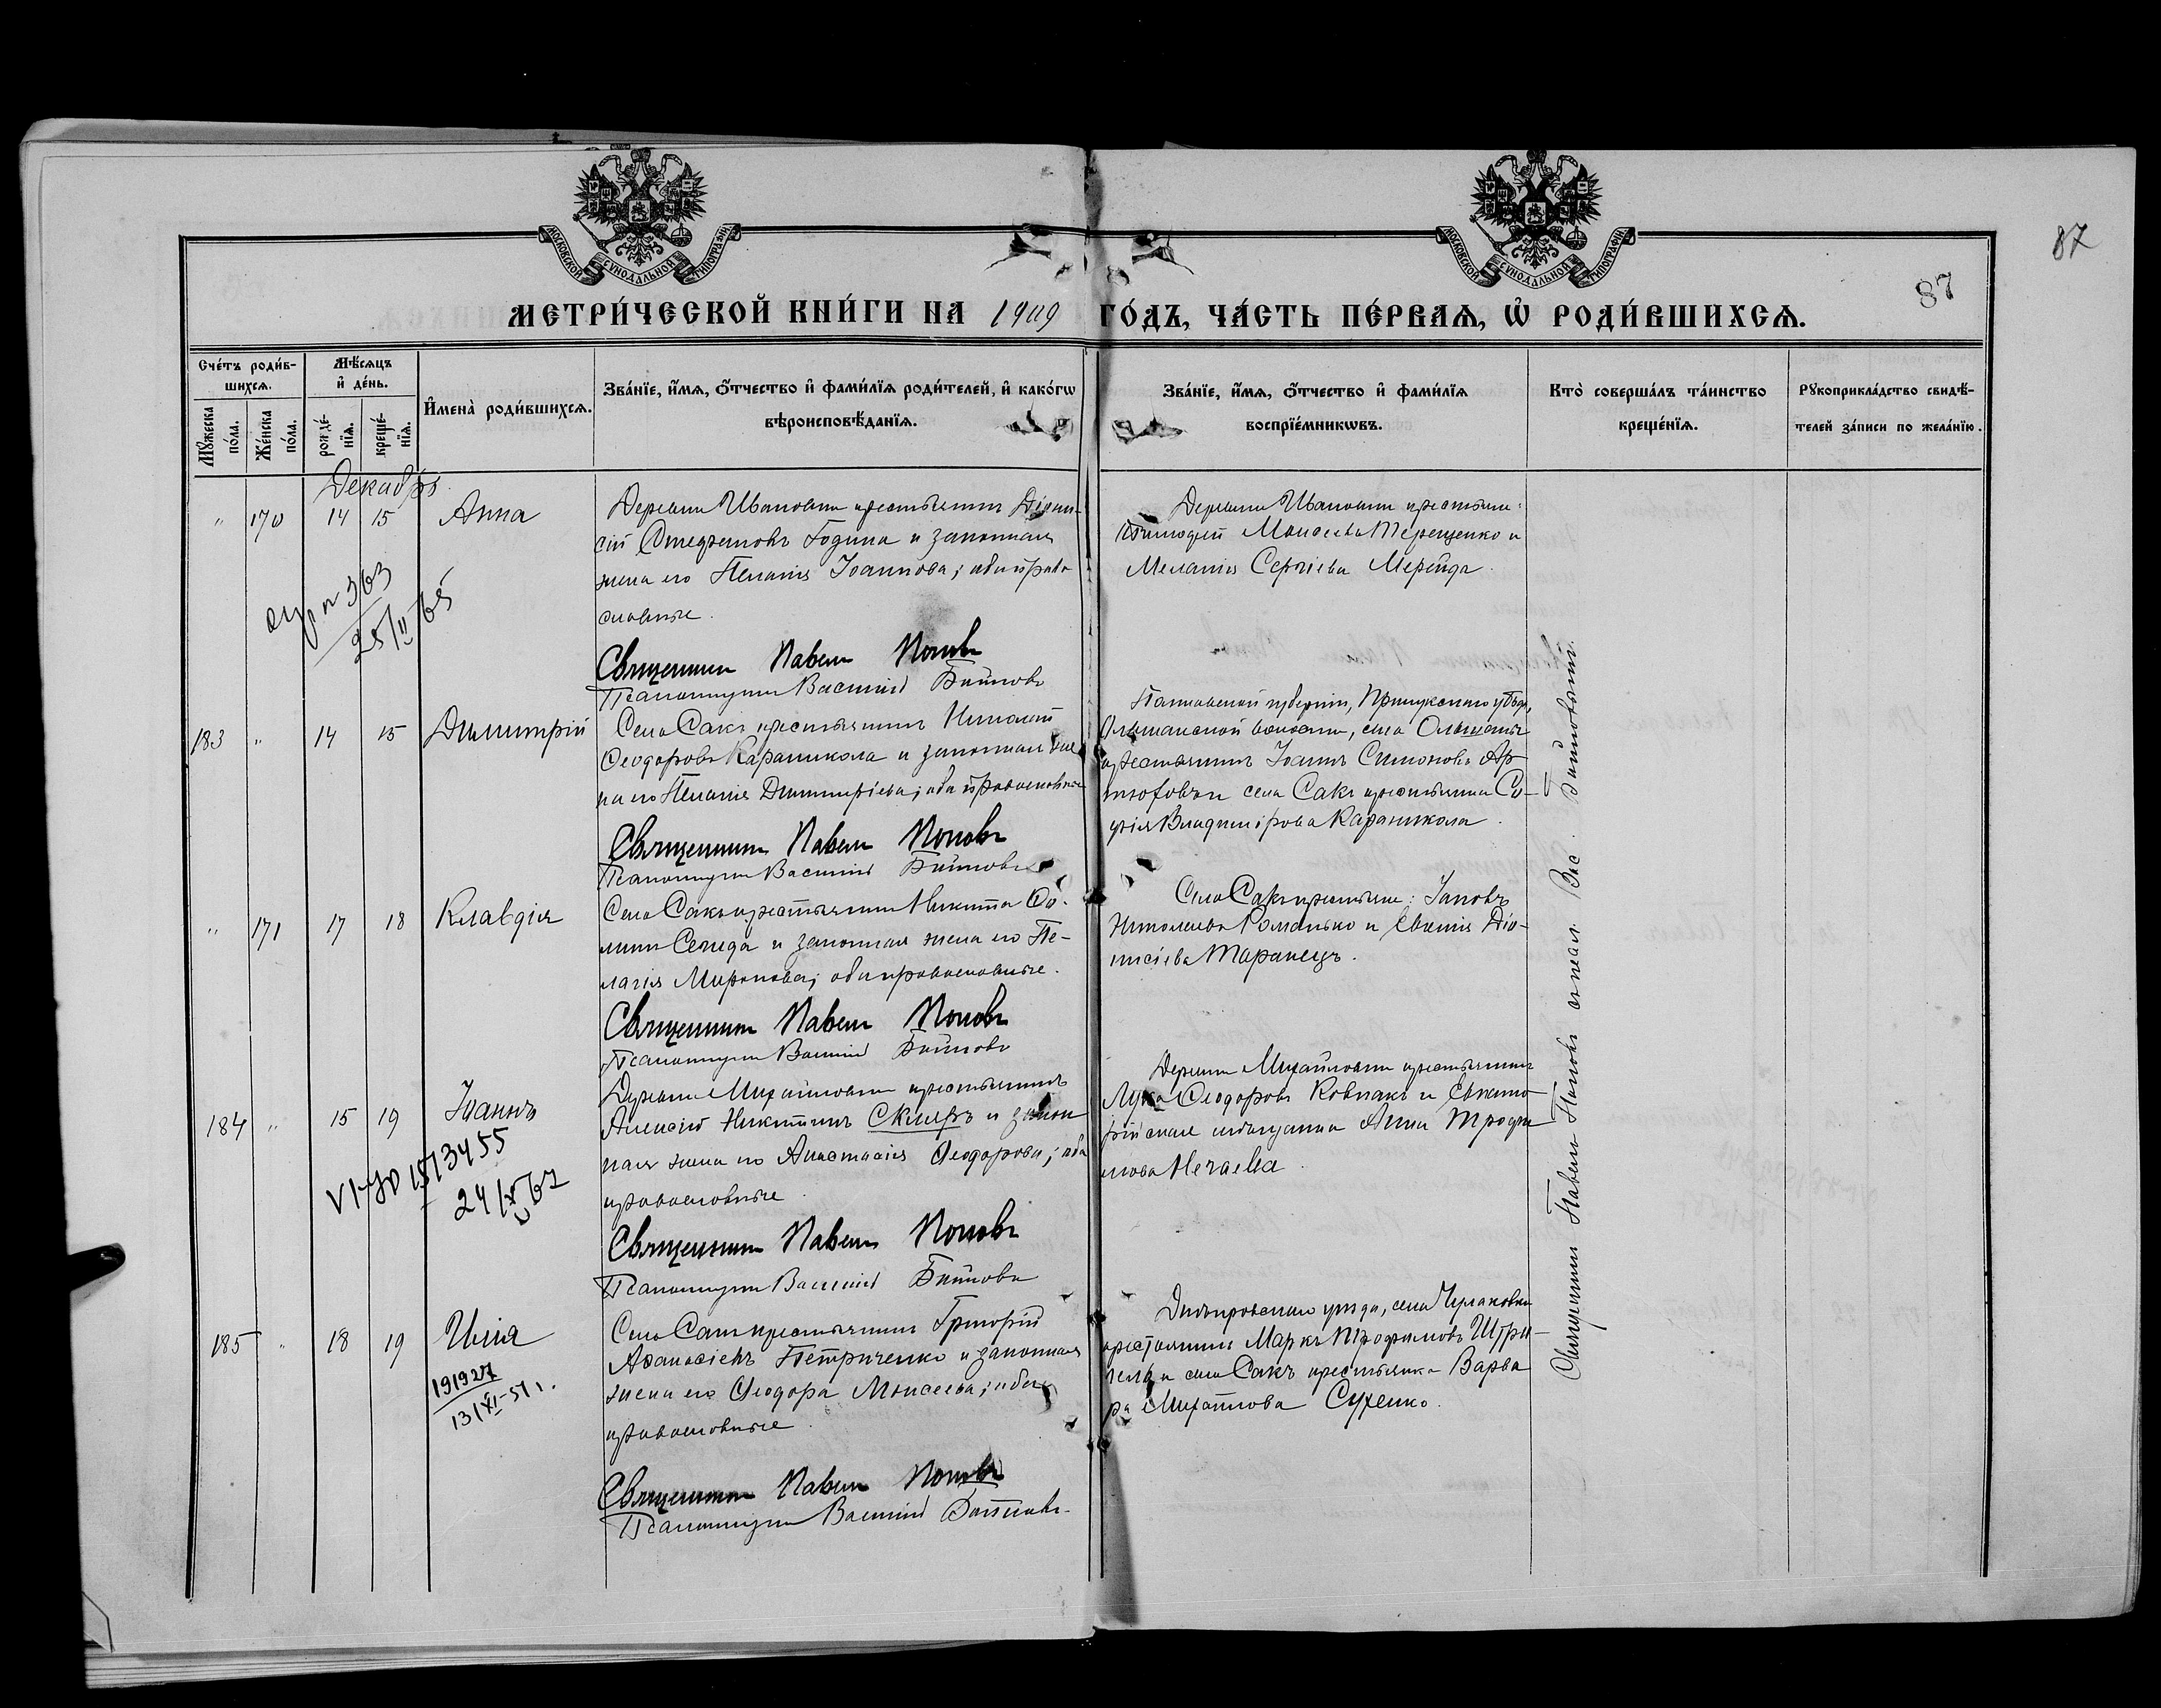 87
87
МОСКОВСКОЙ СѴНОДАЛЬНОЙ ТИПОГРАФІИ
МОСКОВСКОЙ СѴНОДАЛЬНОЙ ТИПОГРАФІИ
МЕТРИ́ЧЕСКОЙ КНИ́ГИ НА 1909 ГО́ДЪ, ЧА́СТЬ ПЕ́РВАЯ, Ѡ҆ РОДИ́ВШИХСЯ.
Сче́тъ роди́в-
шихся.
Мꙋ́жеска по́ла.
Же́нска по́ла.
Мѣ́сяцъ
и҆ де́нь.
рожде́-
нїя.
креще́-
нїя.
И҆мена̀ роди́вшихся.
Зва́нїе, и҆́мя, ѻ҆́тчество и҆ фами́лїя роди́телей, и҆ како́гѡ
вѣроисповѣ́данїя.
Зва́нїе, и҆́мя, ѻ҆́тчество и҆ фами́лїя
воспрїе́мникѡвъ.
Кто̀ соверша́лъ та́инство
креще́нїя.
Рꙋкоприкла́дство свидѣ́-
телей за́писи по жела́нїю.
Декабрь
" 170 14 15 Анна
Деревни Ивановки крестьянинъ Діони-
сій Стефановъ Година и законная
жена его Пелагія Іоаннова; оба право
славные.
Священникъ Павелъ Поповъ
Псаломщикъ Василій Бойтовъ
Деревни Ивановки крестьяне:
Тимофей Моисеевъ Терещенко и
Меланія Сергіева Мерейда.
№ 363
25/II 65
183 " 14 15 Димитрій
Села Сакъ крестьянинъ Николай
Ѳеодоровъ Караникола и законная же
на его Пелагія Димитріева; оба православные
Священникъ Павелъ Поповъ
Псаломщикъ Василій
Полтавской губерніи, Прилукскаго уѣзда,
Ольшанской волости, села Ольшаны
крестьянинъ Іоаннъ Симоновъ Ар
тюховъ и села Сакъ крестьянка Со-
фія Владимірова Караникола.
" 171 17 18 Клавдія
Села Сакъ крестьянинъ Никита Ѳо-
минъ Середа и законная жена его Пе-
лагія Миронова; оба православные.
Священникъ Павелъ Поповъ
Псаломщикъ Василій
Села Сакъ крестьяне: Іаковъ
Николаевъ Романько и Евгенія Діо-
нисіева Таранецъ.
184 " 15 19 Іоаннъ
Деревни Михайловки крестьянинъ
Алексій Никитинъ Скляръ и закон
ная жена его Анастасія Ѳеодорова; оба
православные
Священникъ Павелъ Поповъ
Псаломщикъ Василій
Деревни Михайловки крестьянинъ
Лука Ѳеодоровъ Ковпакъ и Евпато-
рійская мѣщанка Анна Трофи
мова Нечаева.
VI-УР 1513455
24/X 67
185 " 18 19 Илія
Села Сакъ крестьянинъ Григорій
Аѳанасіевъ Петриченко и законная
жена его Ѳеодора Моисеева; оба
православные
Священникъ Павелъ Поповъ
Псаломщикъ Василій
Днѣпровскаго уѣзда, села
крестьянинъ Маркъ Трофимовъ
и села Сакъ крестьянка Варва
ра Михайлова Сухенко.
191927
13/XI-51 г.
Священникъ Павелъ Поповъ